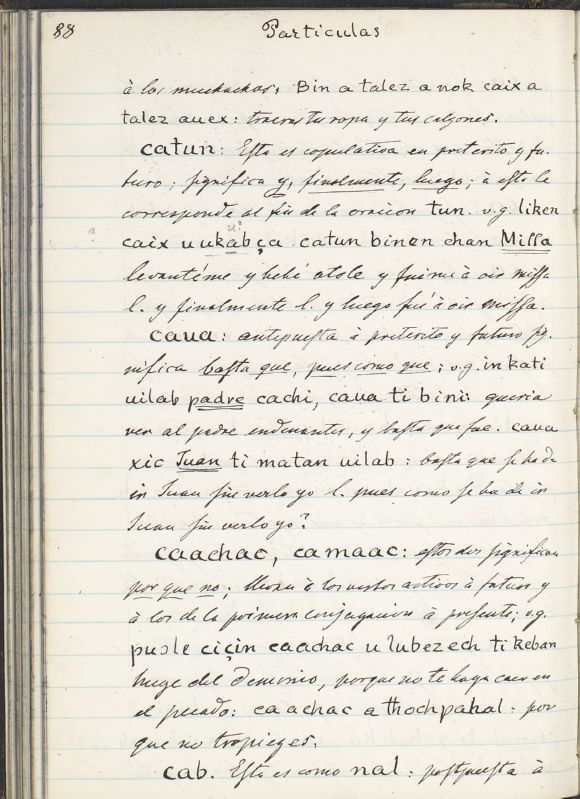 88 Particulas
à los muchachos; Bin a talez a nok caix a
talez auex: traeras tu ropa y tus calzones.
catun: Esta es copulativa en preterito y fu-
turo; significa y, finalmente, luego; à esta le
corresponde al fin de la oracion tun. v.g. liken
caix uukabça catun binen chan Missa
levantéme y bebí atole y fuime à oir missa
l. y finalmente l. y luego fué à oir missa.
caua: antepuesta à preterito y futuro sig-
nifica basta que, pues como que; v.g. in kati
uilab padre cachi, caua ti bini: queria
ver al padre endenantes, y basta que fue. caua
xic Juan ti matan uilab: basta que se ha de
ir Juan sin verlo yo l. pues como se ha de ir
Juan sin verlo yo?
caachac, camaac: estos dos significan
por que no; llevan à los verbos activos à futuro y
à los de la primera conjugacion à presente; v.g.
puole ciçin caachac u lubezech ti keban
huye del demonio, porque no te haga caer en
el pecado: caachac a thochpahal: por
que no tropieges.
cab. Esta es como nal: postpuesta à